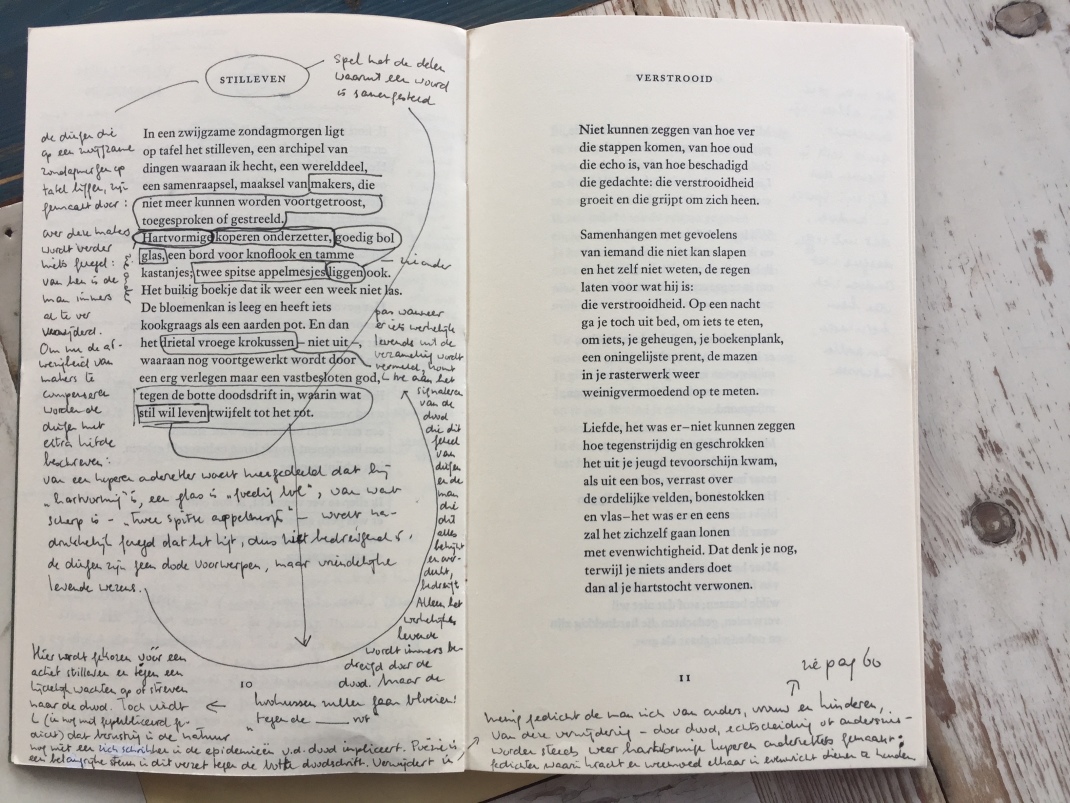 STILLEVEN
Spel met de delen
waaruit een woord
is samengesteld
de dingen die
op een zwijgzame
zondagmorgen op
tafel liggen, zijn
gemaakt door:
over deze makers
wordt verder
niets gezegd:
van hen is de
man immers
al te ver
verwijderd.
Om nu de af-
wezigheid van
makers te
compenseren
worden de
dingen met
extra liefde
beschreven:
In een zwijgzame zondagmorgen ligt
op tafel het stilleven, een archipel van
dingen waaraan ik hecht, een werelddeel,
een samenraapsel, maaksel van makers, die
niet meer kunnen worden voortgetroost,
toegesproken of gestreeld.
Hartvormige koperen onderzetter, goedig bol
glas, een bord voor knoflook en tamme
kastanjes; twee spitse appelmesjes liggen ook.
Het buikig boekje dat ik weer een week niet las.
De bloemenkan is leeg en heeft iets
kookgraags als een aarden pot. En dan
het drietal vroege krokussen – niet uit –,
waaraan nog voortgewerkt wordt door
een erg verlegen maar een vastbesloten god,
tegen de botte doodsdrift in, waarin wat
stil wil leven twijfelt tot het rot.
zie onder
pas wanneer
er iets werkelijk
levends uit de
verzameling wordt
vermeld, komt
het aan het
signaleren
van de
dood
die dit
geheel
van
dingen
en de
man
die
dit
alles
bekijkt
en over-
denkt,
bedreigt
Alleen het
werkelijk
levende
wordt immers be-
dreigd door de
dood. Maar de
krokussen zullen gaan bloeien!
tegen de ___ rot
van een koperen onderzetter wordt meegedeeld dat hij
"hartvormig" is, een glas is "goedig bol", van wat
scherp is – "twee spitse appelmesjes" – wordt na-
drukkelijk gezegd dat het ligt, dus niet bedreigend is.
de dingen zijn geen dode voorwerpen, maar vriendelijke
levende wezens.
Hier wordt gekozen vóór een
actief stilleven en tegen een
lijdelijk wachten op of streven
naar de dood. Toch vindt
L (in nog niet gepubliceerd ge-
dicht) dat berusting in de natuur
nog niet een zich schikken in de epidemieën v.d. dood impliceert. Poëzie is
een belangrijke stem in dit verzet tegen de botte doodsdrift. Verwijdert in
10
VERSTROOID
Niet kunnen zeggen van hoe ver
die stappen komen, van hoe oud
die echo is, van hoe beschadigd
die gedachte: die verstrooidheid
groeit en die grijpt om zich heen.
Samenhangen met gevoelens
van iemand die niet kan slapen
en het zelf niet weten, de regen
laten voor wat hij is:
die verstrooidheid. Op een nacht
ga je toch uit bed, om iets te eten,
om iets, je geheugen, je boekenplank,
een oningelijste prent, de mazen
in je rasterwerk weer
weinigvermoedend op te meten.
Liefde, het was er – niet kunnen zeggen
hoe tegenstrijdig en geschrokken
het uit je jeugd tevoorschijn kwam,
als uit een bos, verrast over
de ordelijke velden, bonestokken
en vlas – het was er en eens
zal het zichzelf gaan lonen
met evenwichtigheid. Dat denk je nog,
terwijl je niets anders doet
dan al je hartstocht verwonen.
11
zie pag 60
menig gedicht de man zich van anders, vrouw en kinderen,
van deze verwijdering – door dood, echtscheiding of anderszins –
worden steeds weer hartvormige koperen onderzetters gemaakt:
gedichten waarin kracht en weemoed elkaar in evenwicht dienen te houden